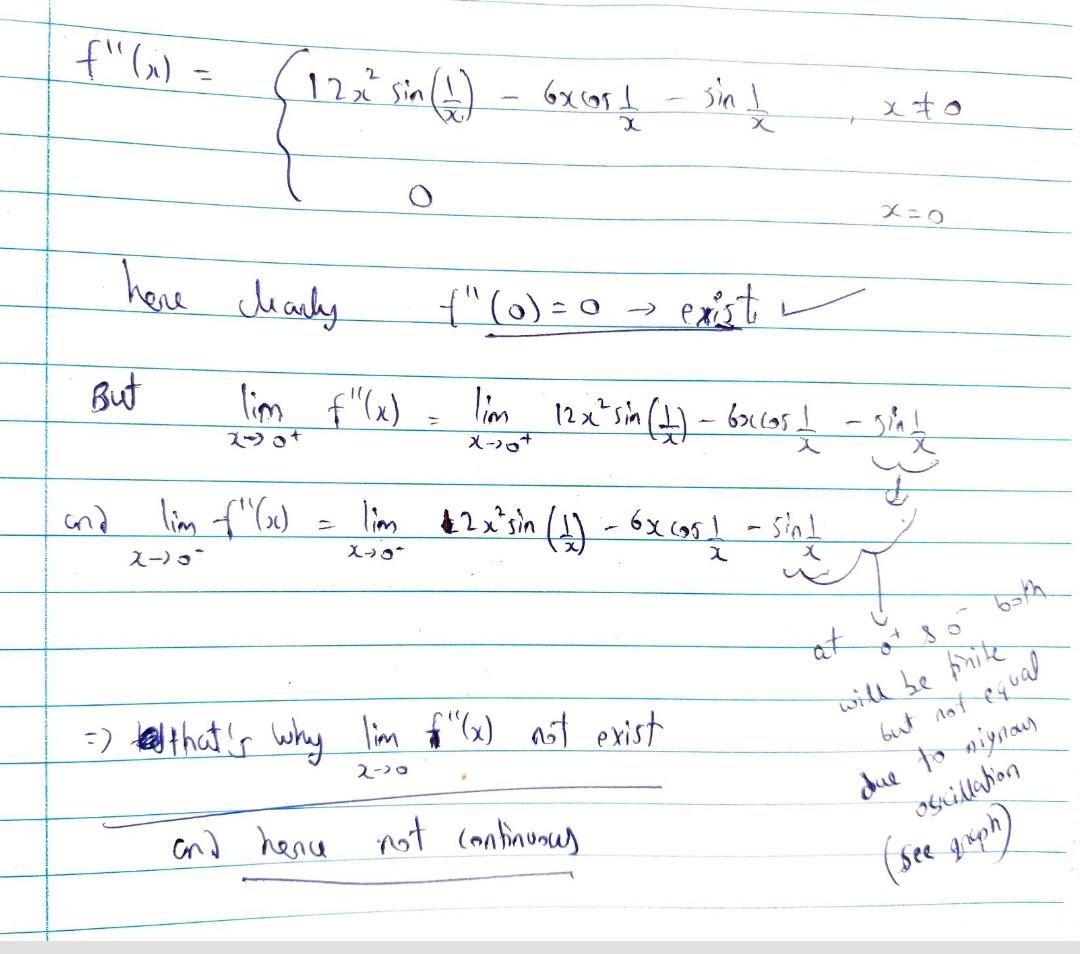 f''(x) = { 12x² sin(1/x) - 6x cos 1/x - sin 1/x , x ≠ 0
0 x = 0
here clearly f''(0) = 0 → exist ✓
But lim x→0⁺ f''(x) = lim x→0⁺ 12x² sin(1/x) - 6x cos 1/x - sin 1/x
and lim x→0⁻ f''(x) = lim x→0⁻ 12x² sin(1/x) - 6x cos 1/x - sin 1/x
at 0⁺ & 0⁻ both
will be finite
but not equal
due to
oscillation
(see graph)
=> that's why lim x→0 f''(x) not exist
and hence not continuous